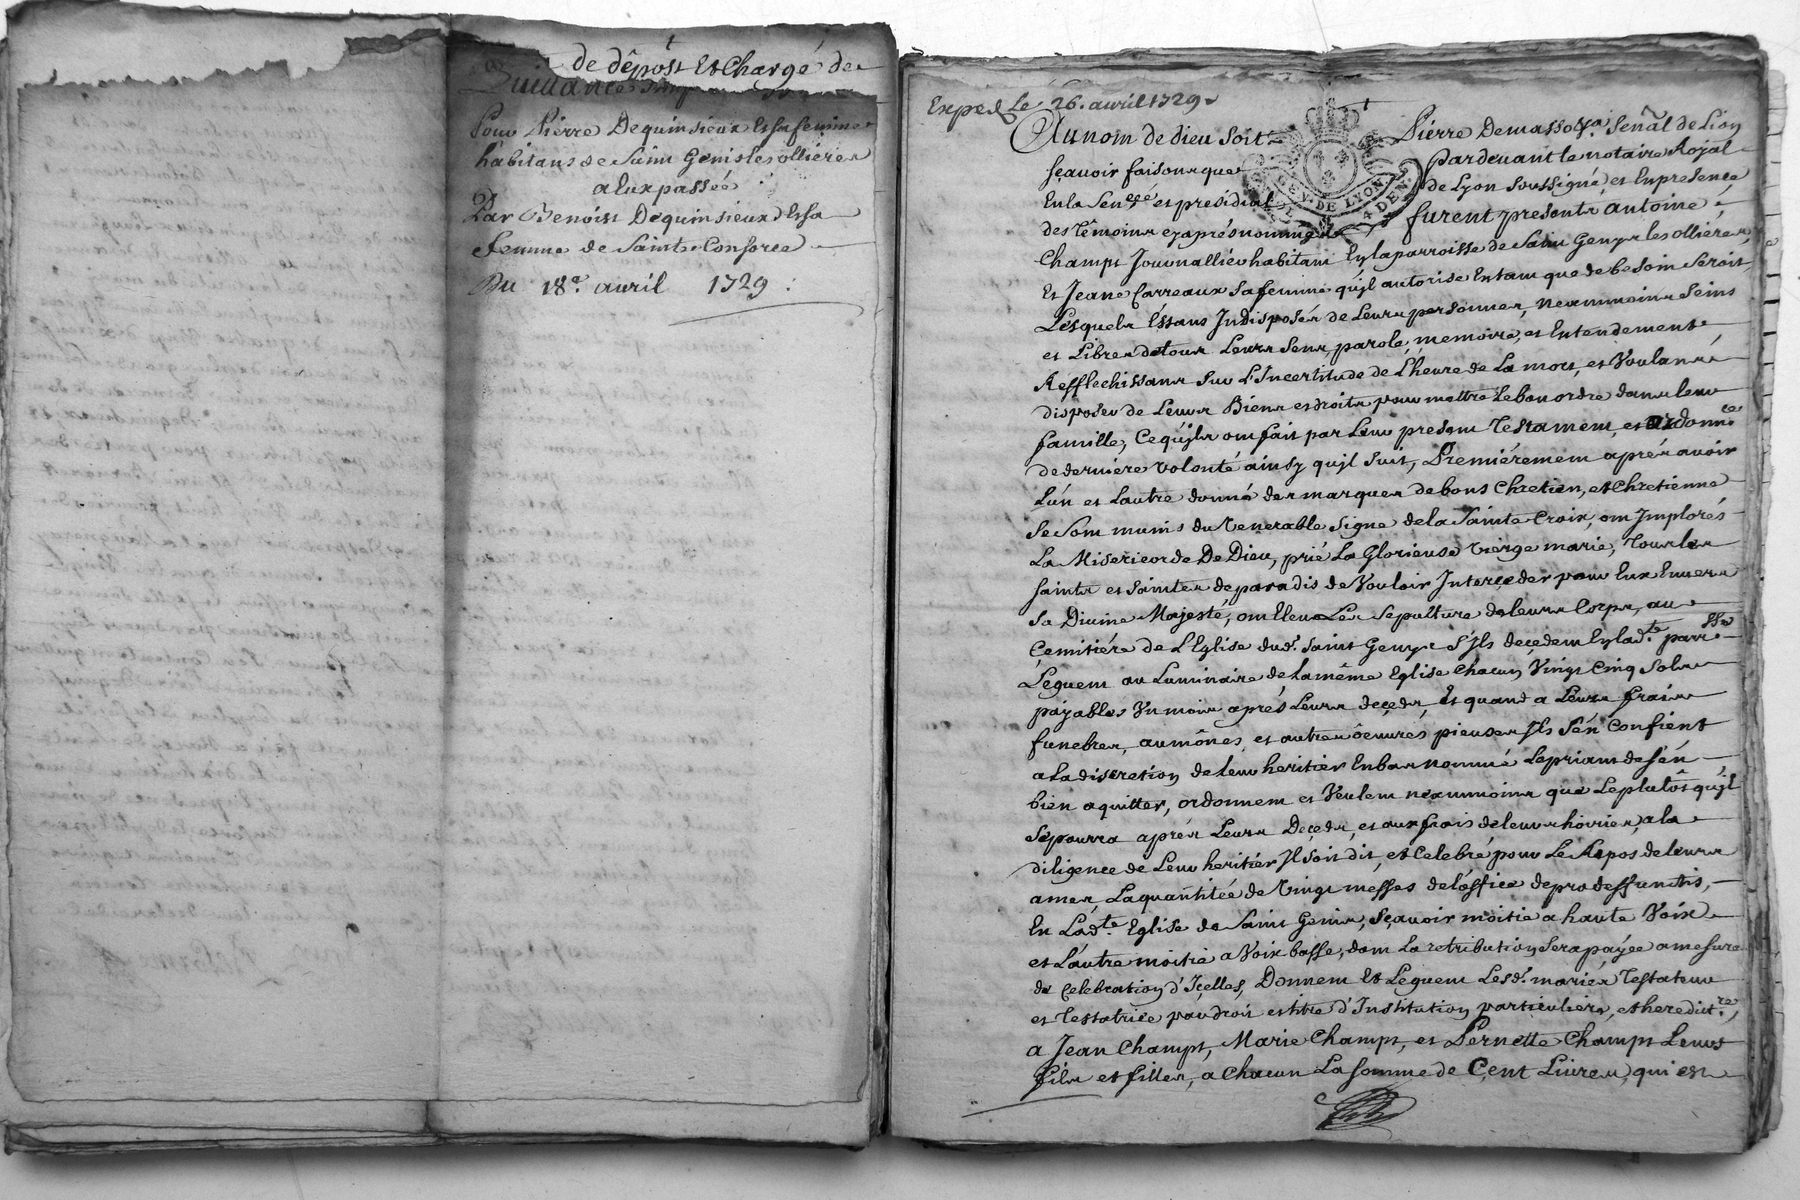 de dépost Et Chargé de
Quittance
Pour Pierre Dequinsieux Et sa femme
habitans de Saint Genis les ollieres
a Eux passée
Par Benoist Dequinsieux Et sa
femme de Sainte Consorce
Du 18e. avril 1729 :
Exped. Le 26. avril 1729
Au nom de dieu soit Pierre Demasso Sen.al de Lion
sçavoir faisons que Pardevant le notaire Royal
En la Sen.cée et presidial de Lyon soussigné, et En presence
des têmoins cy aprés nommés furent presents antoine
Champs Journallier habitant En la parroisse de Saint Genys les ollières,
Et Jeane Carreaux sa femme qu'jl autorise En tant que de besoin seroit
Lesquels Estans Indisposés de Leurs personnes, neanmoins seins
et Libres de tous Leurs sens, parole, memoire, et Entendement
Refflechissans sur L'Incertitude de L'heure de La mort, et Voulans
disposer de Leurs Biens et droits pour mettre Le bon ordre dans leur
famille, Ce qu'jls ont fait par Leur present Testament, et ordonnce
de derniere volonté ainsy qu'jl suit, Premiérement aprés avoir
L'un et Lautre donné des marques de bons Chretien, et Chretienne
se sont munis du Venerable signe de la Sainte Croix, ont Implorés
La Misericorde De Dieu, prié La Glorieuse Vierge marie, Tous les
saints et saintes de paradis de Vouloir Interçeder pour Eux Envers
sa Divine Majesté, ont Eleu Les sepulture de leurs Corps, au
Cemitiére de L'Eglise dud. saint Genys s'jls decedent En lad.te parr.sse
Leguent au Luminaire de la même Eglise chacun Vingt Cinq sols
payables Un mois aprés Leurs deçeds, Et quand a Leurs frais
funebres, aumônes, et autres oeuvres pieuses Jls s'én Confient
a La discretion de leur heritier En bas nommé Le priant de s'én
bien aquitter, ordonnent et Veulent neanmoins que Le plutôt qu'jl
se pourra aprés Leurs Deçeds, et aux frais de leurs hoiries, a la
diligence de Leur heritier Jl soit dit, et Celebré pour Le Repos de leurs
ames, La quantitée de Vingt messes de L'office de pro deffunctis,
En Lad.te Eglise de Saint Genis, sçavoir moitie a haute Voix
et L'autre moitie a Voix basse, dont La retribution sera payée a mesure
de Celebration d'Içelles, Donnent Et Leguent Lesd. mariés Testateur
et Testatrice par droit et titre d'Institution particuliere, et heredit.re,
a Jean Champs, Marie Champs, et Pernette Champs Leurs
fils et filles, a Chacun La somme de Cent Livres, qui est